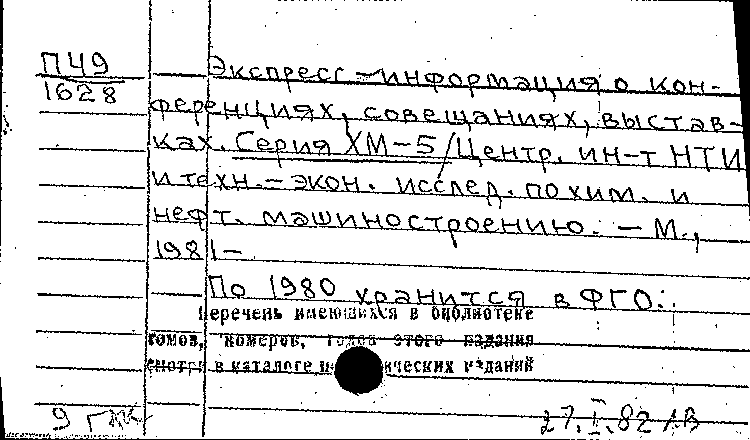 П49
1628
Экспресс-информация о кон-
ференциях, совещаниях, выстав-
ках. Серия ХМ-5/Центр. ин-т НТИ
и техн.-экон. исслед. по хим. и
нефт. машиностроению. - М.,
1981-
По 1980 хранится в ФГО.
Перечень имеющихся в библиотеке
томов, номеров, годов этого издания
смотри в каталоге периодических изданий
27.I.82